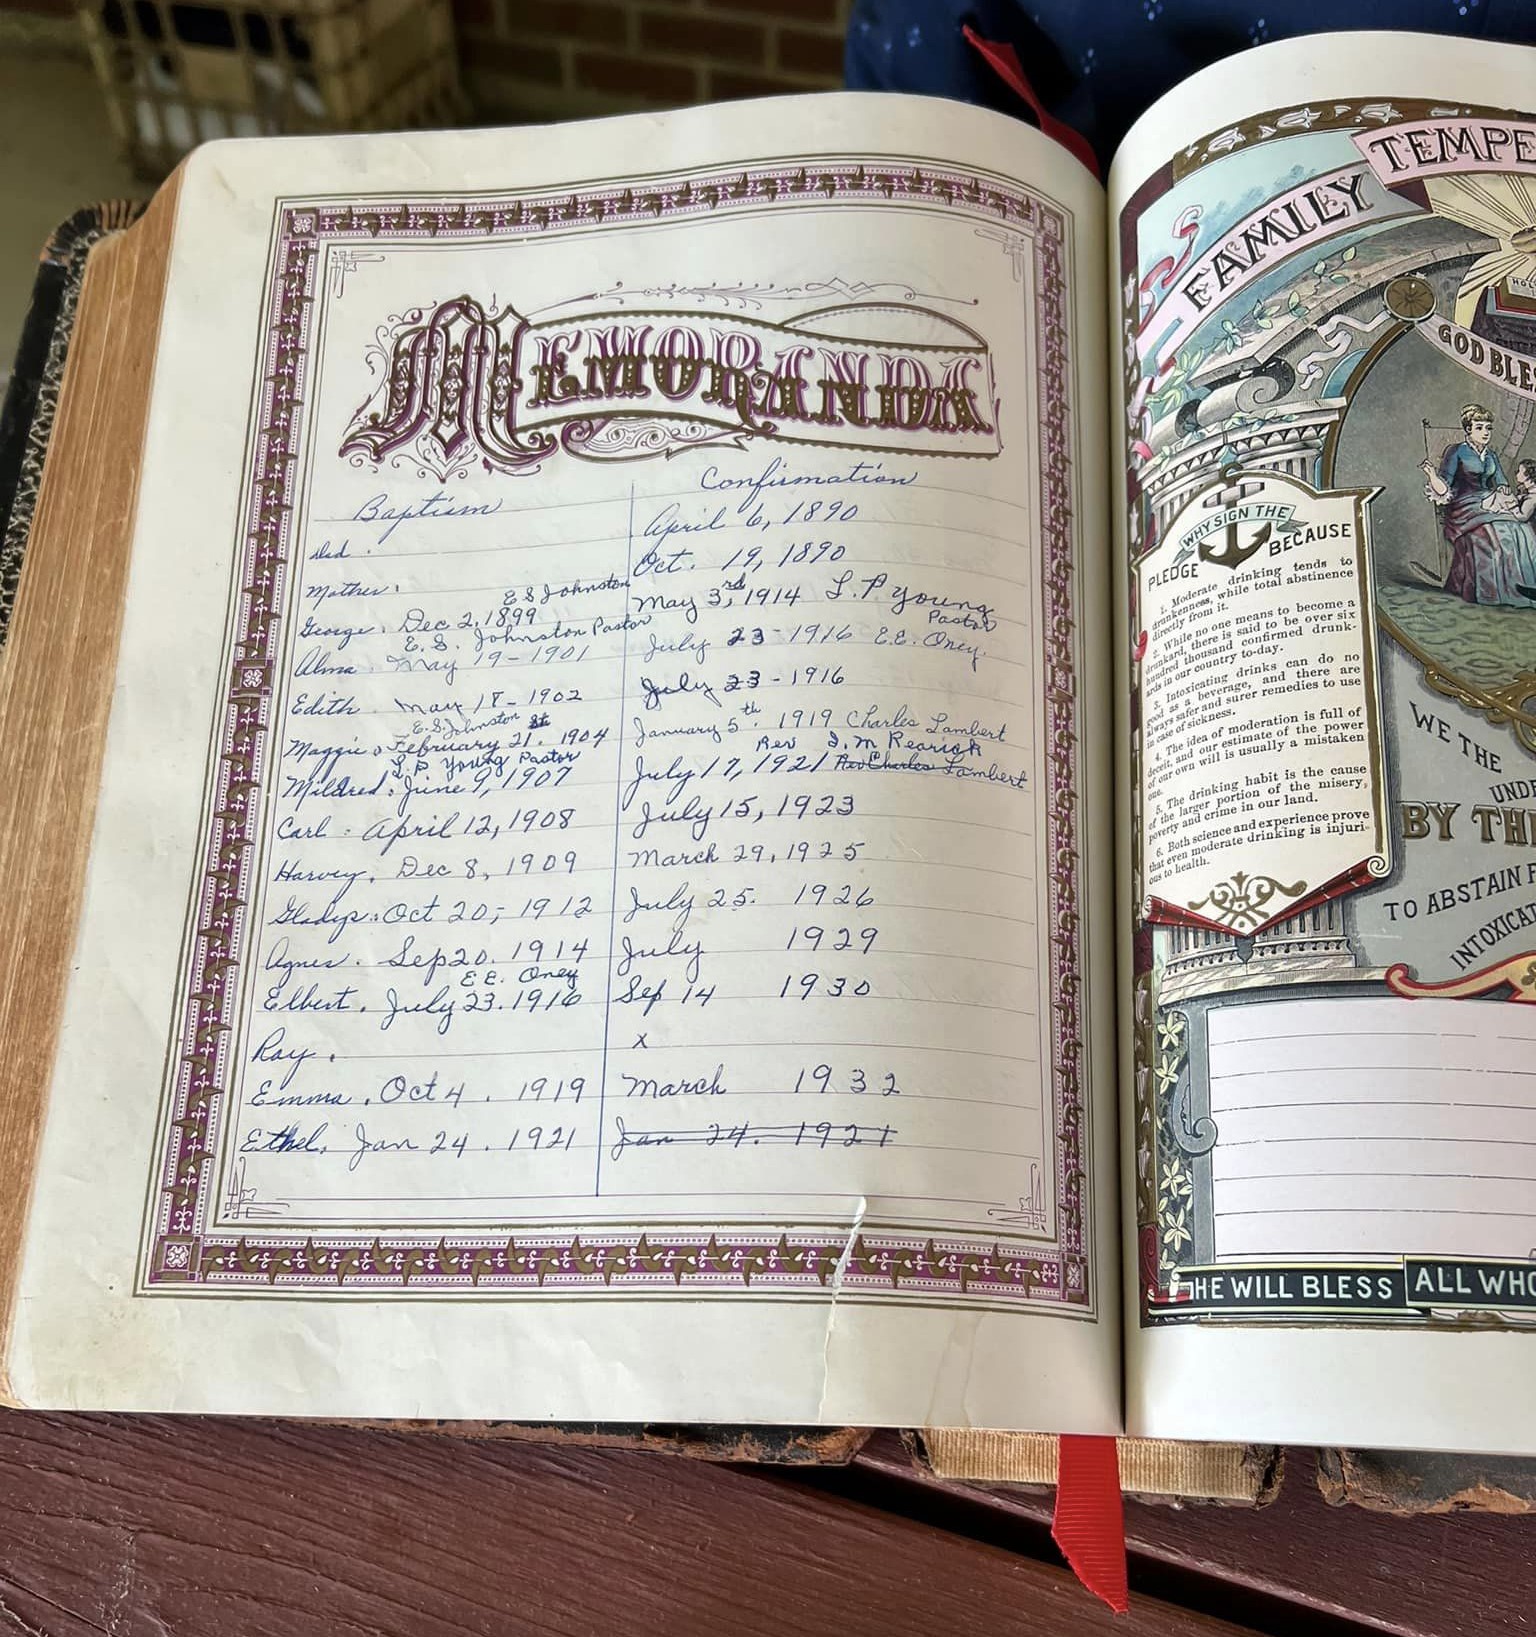 MEMORANDA
Baptism
Confirmation
Dad .
April 6, 1890
Mother.
Oct. 19, 1890
E S Johnston
George. Dec 2, 1899
May 3,rd 1914 L. P Young
Pastor
E. S. Johnston Pastor
Alma. May 19-1901
July 23-1916 E.E. Oney.
Edith. May 18-1902
July 23-1916
E.S. Johnston
Maggie. February 21. 1904
January 5th. 1919 Charles Lambert
L. P Young Pastor
Rev I. M Rearick
Mildred. June 9, 1907
July 17, 1921 Rev Charles Lambert
Carl. April 12, 1908
July 15, 1923
Harvey. Dec 8, 1909
March 29, 1925
Gladys. Oct 20, 1912
July 25. 1926
Agnes. Sep 20. 1914
July 1929
E E. Oney
Elbert. July 23. 1916
Sep 14 1930
Ray.
x
Emma. Oct 4. 1919
March 1932
Ethel. Jan 24. 1921
Jan 24. 1921
FAMILY TEMPE
HOL
GOD BLES
WHY SIGN THE
PLEDGE BECAUSE
1. Moderate drinking tends to
drunkenness, while total abstinence
directly from it.
2. While no one means to become a
drunkard, there is said to be over six
hundred thousand confirmed drunk-
ards in our country to-day.
3. Intoxicating drinks can do no
good as a beverage, and there are
always safer and surer remedies to use
in case of sickness.
4. The idea of moderation is full of
deceit, and our estimate of the power
of our own will is usually a mistaken
one.
5. The drinking habit is the cause
of the larger portion of the misery,
poverty and crime in our land.
6. Both science and experience prove
that even moderate drinking is injuri-
ous to health.
WE THE
UNDE
BY THI
TO ABSTAIN F
INTOXICAT
HE WILL BLESS ALL WHO